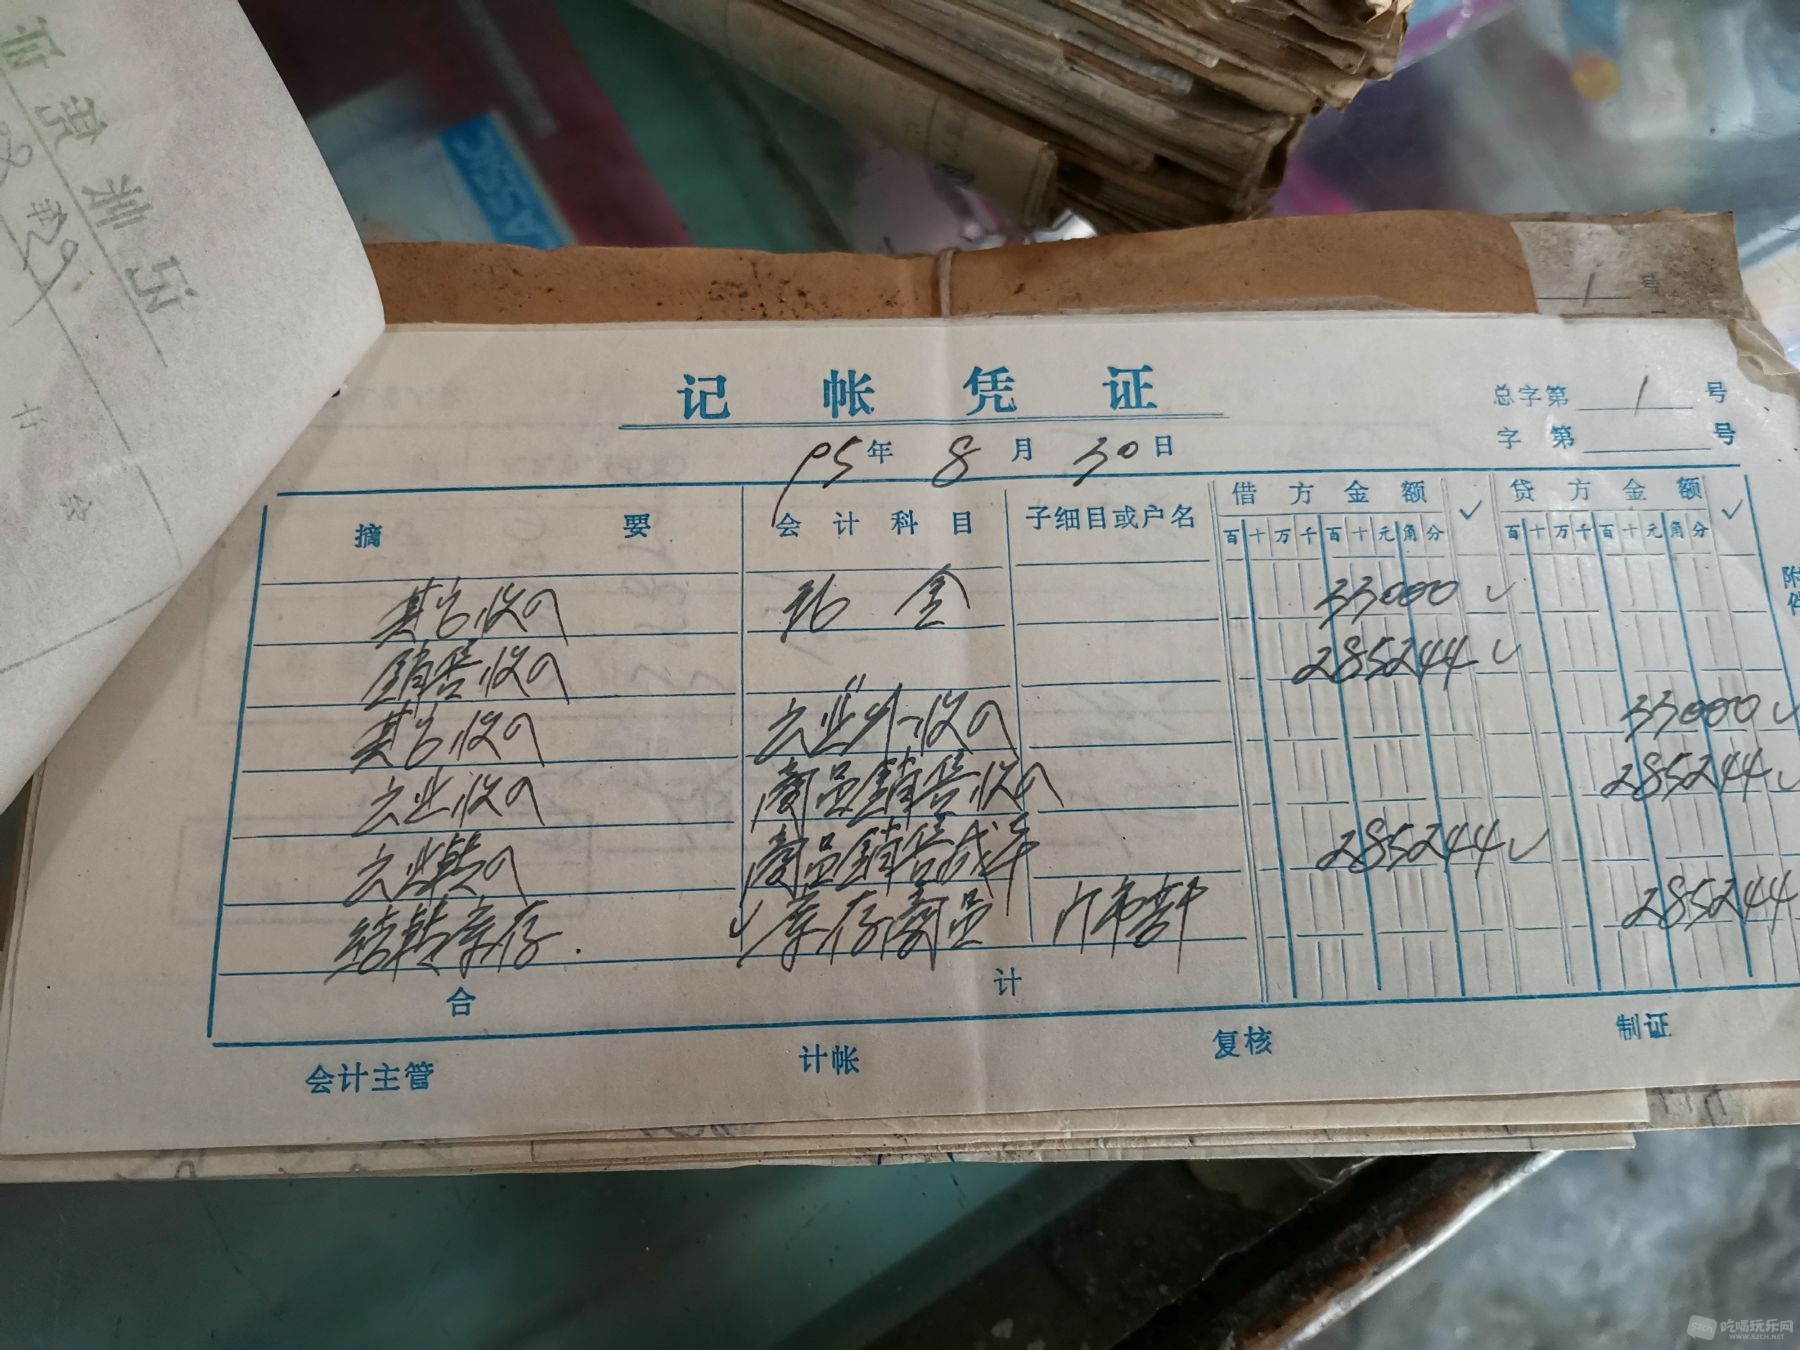 ASSIC
1 号
记 帐 凭 证
总字第 1 号
字 第 号
95 年 8 月 30 日
摘 要 会 计 科 目 子细目或户名 借 方 金 额 ✓ 贷 方 金 额 ✓
百 十 万 千 百 十 元 角 分 百 十 万 千 百 十 元 角 分
附件
其它收入 现 金 33000 ✓
销售收入 285244 ✓
其它收入 营业外收入 33000 ✓
营业收入 商品销售收入 285244 ✓
营业转入 商品销售成本 285244 ✓
结转库存. ✓ 库存商品 门市部 285244
合 计
会计主管 计帐 复核 制证
吃喝玩乐网
WWW.52CH.NET